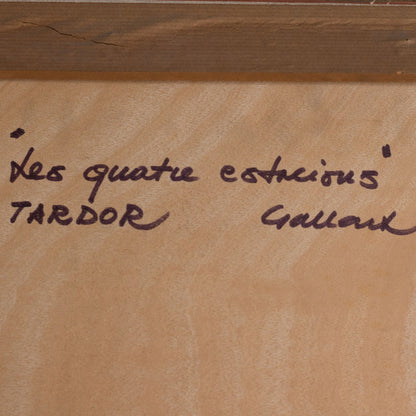 "Les quatre estacions"
TARDOR Gallard